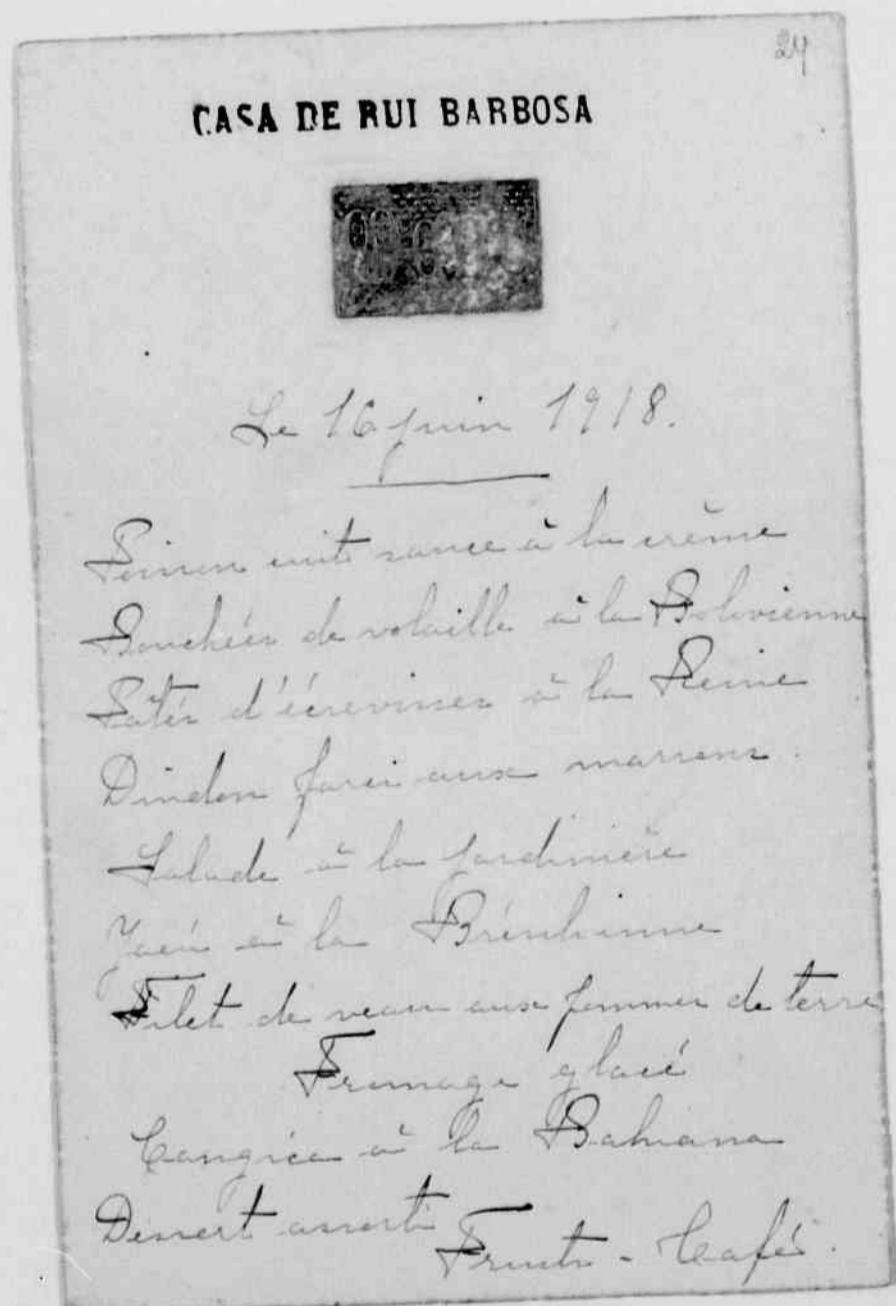 24
CASA DE RUI BARBOSA
Le 16 juin 1918.
Poisson cuit sauce à la crème
Bouchées de volaille à la Bolivienne
Pâtés d'écrevisses à la Reine
Dindon farci aux marrons.
Salade à la jardinière
à la Brésilienne
Filet de veau aux pommes de terre
Fromage glacé
Cangica à la Bahiana
Dessert assorti
Fruits - Café.